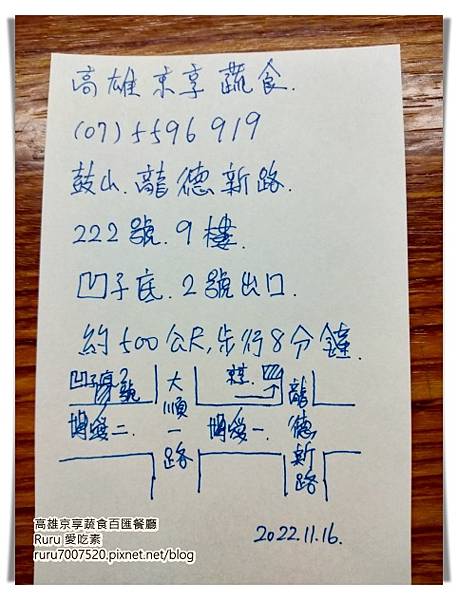 高雄京享蔬食.
(07)5596919
鼓山.龍德新路.
222號.9樓.
凹子底.2號出口.
約500公尺,步行8分鐘.
凹子底2號
大順一路
龍德新路
博愛二.
博愛一.
2022.11.16.
高雄京享蔬食百匯餐廳
Ruru 愛吃素
ruru7007520.pixnet.net/blog